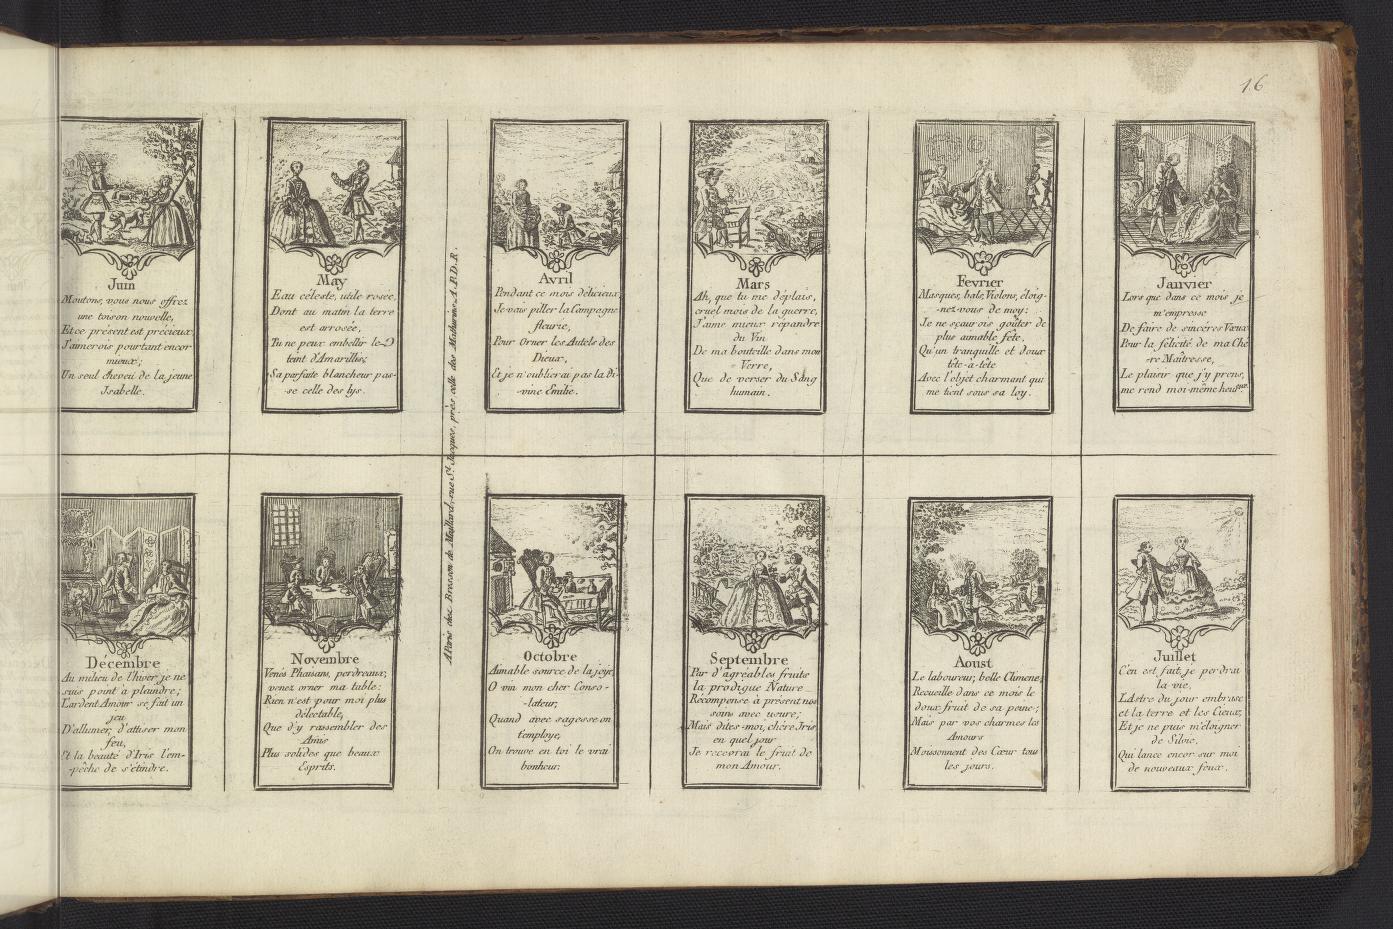 16
Juin
Moutons, vous nous offrez
une toison nouvelle,
Et ce présent est précieux;
J'aimerois pourtant encor
mieux;
Un seul cheveu de la jeune
Isabelle.
May
Eau céleste, utile rosée,
Dont au matin la terre
est arrosée,
Tu ne peux embellir le
teint d'Amarillis;
Sa parfaite blancheur pas-
-se celle des lys.
Avril
Pendant ce mois délicieux
Je vais piller la Campagne
fleurie,
Pour Orner les Autels des
Dieux,
Et je n'oublierai pas la Di-
-vine Emilie.
Mars
Ah, que tu me déplais,
cruel mois de la guerre,
J'aime mieux répandre
du Vin
De ma bouteille dans mon
= Verre,
Que de verser du Sang
humain.
Fevrier
Masques, bals, Violons, éloig-
-nez-vous de moy:
Je ne sçaurois goûter de
plus aimable fête,
Qu'un tranquille et doux
tête-à-tête
Avec l'objet charmant qui
me tient sous sa loy.
Janvier
Lors que dans ce mois je
m'empresse
De faire de sincères Vœux
Pour la félicité de ma Chè
-re Maîtresse,
Le plaisir que j'y prens,
me rend moi-même heureux.
A Paris chez Bresson de Maillard, rue St. Jacques, près celle des Mathurins A.P.D.R.
Décembre
Au milieu de l'hiver je ne
suis point à plaindre;
L'ardent Amour se fait un
jeu
D'allumer, d'attiser mon
feu,
Et la beauté d'Iris l'em-
-pêche de s'etindre.
Novembre
Venés Phaisans, perdreaux,
venez orner ma table:
Rien n'est pour moi plus
délectable,
Que d'y rassembler des
Amis
Plus solides que beaux
Esprits.
Octobre
Aimable source de la joye,
O vin mon cher Conso-
-lateur,
Quand avec sagesse on
t'employe,
On trouve en toi le vrai
bonheur.
Septembre
Par d'agréables fruits
la prodigue Nature
Récompense à présent nos
soins avec usure;
Mais dites-moi, chère Iris
en quel jour
Je recevrai le fruit de
mon Amour.
Aoust
Le laboureur, belle Climene,
Recueille dans ce mois le
doux fruit de sa peine;
Mais par vos charmes les
Amours
Moissonnent des Cœur tous
les jours.
Juillet
C'en est fait, je perdrai
la vie,
L'Astre du jour embrase
et la terre et les Cieux,
Et je ne puis m'éloigner
de Silvie,
Qui lance encor sur moi
de nouveaux feux.